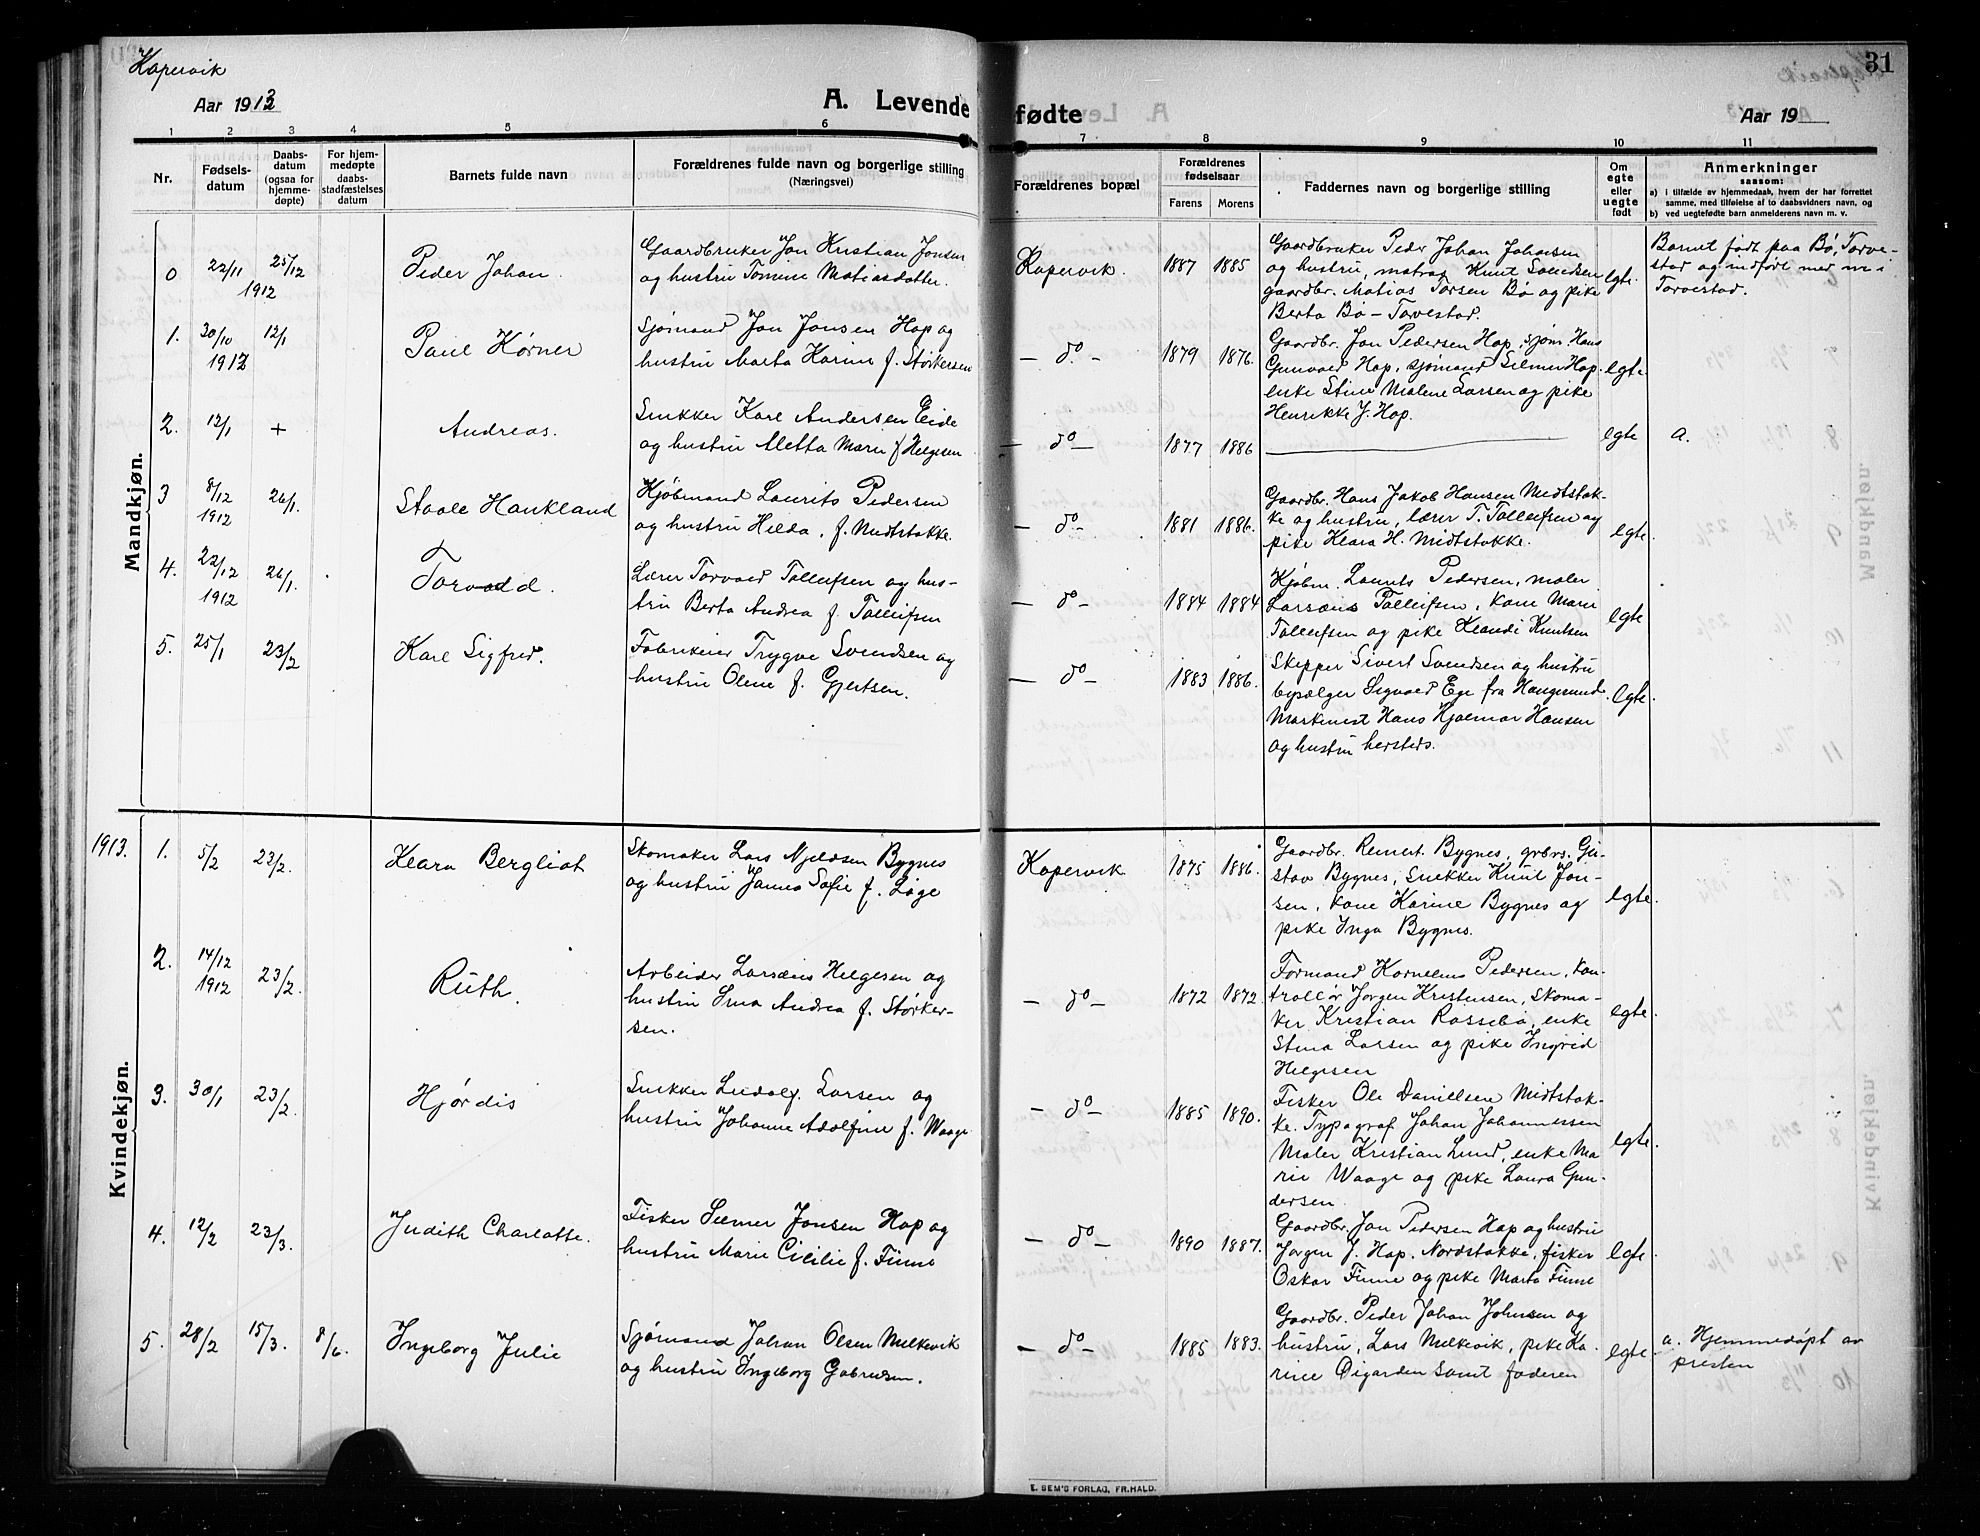 Kopervik
31
Aar 1913
A. Levende
fødte
Aar 19
1 2 3 4 5 6 7 8 9 10 11
Nr.
Fødsels-
datum
Daabs-
datum
(ogsaa for
hjemme-
døpte)
For hjem-
medøpte
daabs-
stadfæstelses
datum
Barnets fulde navn
Forældrenes fulde navn og borgerlige stilling
(Næringsvei)
Forældrenes bopæl
Forældrenes
fødselsaar
Farens Morens
Faddernes navn og borgerlige stilling
Om
egte
eller
uegte
født
Anmerkninger
saasom:
a) i tilfælde av hjemmedaab, hvem der har forrettet
samme, med tilføielse af to daabsvidners navn, og
b) ved uegtefødte barn anmelderens navn m. v.
Mandkjøn.
0 22/11 1912 25/12
Peder Johan.
Gaardbruker Jon Kristian Jonsen
og hustru Tomine Matiasdatter.
Kopervik. 1887 1885
Gaardbruker Peder Johan Johansen
og hustru, matros Knut Svendsen
gaardbr. Matias Torsen Bø og pike
Berta Bø – Torvestad.
egte.
Barnet født paa Bø, Torve-
stad og indført med nr i
Torvestad.
1. 30/10 1912 12/1
Paul Kørner
Sjømand Jon Jonsen Hop og
hustru Marta Karine f. Størkersen
— do — 1879 1876.
Gaardbr. Jon Pedersen Hop, sjøm. Hans
Gunvald Hop, sjømand Selmer Hop.
enke Stine Malene Larsen og pike
Henrikke J. Hop.
egte.
2. 12/1 +
Andreas.
Snikker Karl Andersen Eide
og hustru Aletta Marie f. Helgesen
— do — 1877 1886
egte a.
3 8/12 1912 26/1.
Staale Haukland
Kjøbmand Laurits Pedersen
og hustru Hilda, f. Midtstokke.
— do — 1881 1886.
Gaardbr. Hans Jakob Hansen Midtstok-
ke og hustru, lærer T. Tolleifsen og
pike Klara H. Midtstokke.
egte.
4. 22/12 1912 26/1.
Torvald.
Lærer Torvald Tolleifsen og hus-
tru Berta Andrea f. Tolleifsen
— do — 1884 1884
Kjøbm. Laurits Pedersen, maler
Larsæus Tolleifsen, kone Marie
Tolleifsen og pike Klandi Knutsen
egte
5. 25/1 23/2
Karl Sigfred.
Fabrikeier Trygve Svendsen og
hustru Olene f. Gjertsen.
— do — 1883 1886.
Skipper Sivert Svendsen og hustru
bysælger Sigvald Ege fra Haugesund
Maskinist Hans Hjalmar Hansen
og hustru hersteds.
egte.
Kvindekjøn.
1913. 1. 5/2 23/2.
Klara Bergliot
Skomaker Lars Njeldsen Bygnes
og hustru Janna Sofie f. Løge
Kopervik 1875 1886.
Gaardbr. Reinert Bygnes, grbrs. Gu-
stav Bygnes, snekker Knut Jon-
sen, kone Karine Bygnes og
pike Inga Bygnes.
egte.
2. 14/12 1912 23/2.
Ruth.
Arbeider Larsæus Helgesen og
hustru Irna Andrea f. Størker-
sen.
— do — 1872 1872.
Formand Kornelius Pedersen, kon-
trollør Jørgen Kristensen, skoma-
ker Kristian Rossebø, enke
Stina Larsen og pike Ingrid
Helgesen
egte.
3. 30/1 23/2.
Hjørdis
Snekker Ludolf Larsen og
hustru Johanne Adolfine f. Waage
— do — 1885 1890.
Fisker Ole Danielsen Midtstok-
ke. Typograf Johan Johannessen
Maler Kristian Lund, enke Ma
rie Waage og pike Laura Gun-
dersen.
egte.
4. 12/2 23/3.
Judith Charlotte.
Fisker Selmer Jonsen Hop og
hustru Marie Cicilie f. Finne
— do — 1890 1887.
Gaardbr. Jon Pedersen Hop og hustru
Jørgen J. Hop, Nordstokke, fisker
Oskar Finne og pike Marta Finne
egte.
5. 28/2 15/3. 8/6.
Ingeborg Julie
Sjømand Johan Olsen Melkevik
og hustru Ingeborg Gabrielsen.
— do — 1885 1883.
Gaardbr. Peder Johan Johnsen og
hustru, Lars Melkevik, pike Ka-
rine Øigarden samt faderen
egte.
a. Hjemmedøpt av
presten
E. SEM'S FORLAG, FR.HALD.